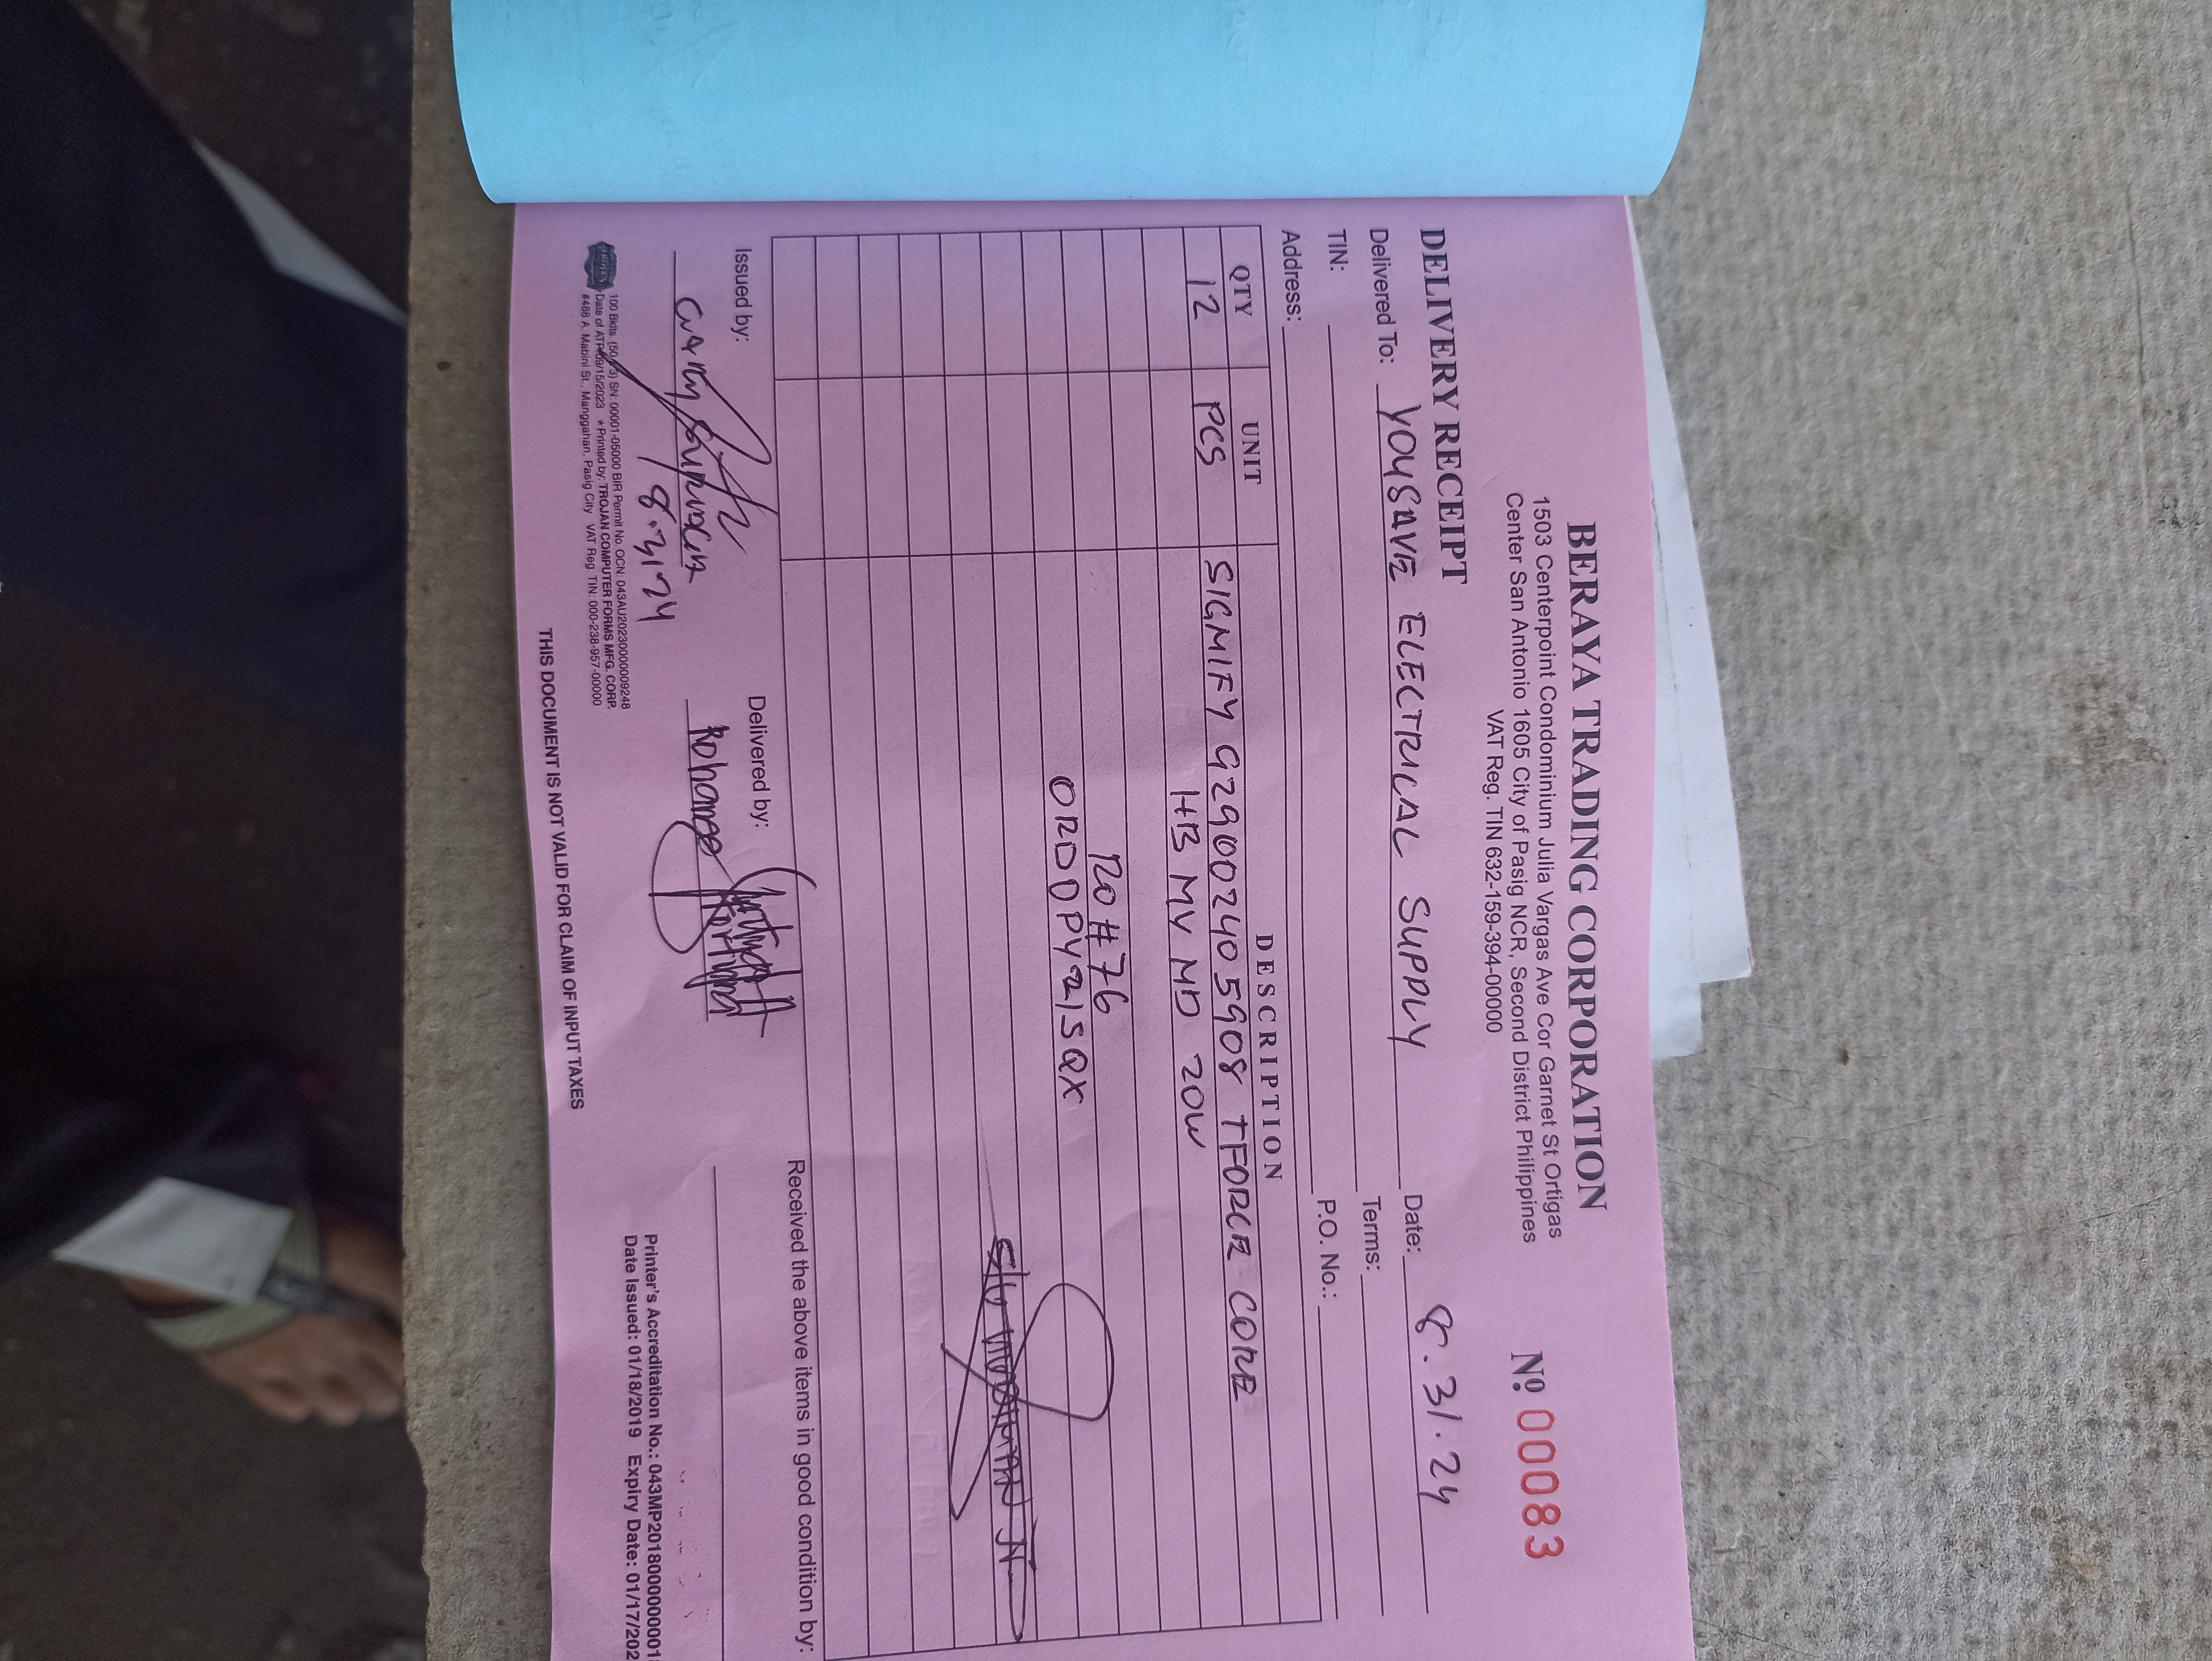 BERAYA TRADING CORPORATION
1503 Centerpoint Condominium Julia Vargas Ave Cor Garnet St Ortigas
Center San Antonio 1605 City of Pasig NCR, Second District Philippines
VAT Reg. TIN 632-159-394-00000
Nº 00083
DELIVERY RECEIPT
Delivered To: YOUSAVE ELECTRICAL SUPPLY Date: 8.31.24
TIN: Terms:
Address: P.O. No.:
QTY UNIT DESCRIPTION
12 PCS SIGMIFY 929002405908 TFORCE CORE
HB MV MD 20W
RO #76
ORDDPY21SQX
Issued by: Delivered by: Received the above items in good condition by:
8.31.24
100 Bklts. SN: 00001-05000 BIR Permit No. OCN: 043AU20230000009248
Date of ATP 09/15/2023 * Printed by: TROJAN COMPUTER FORMS MFG. CORP.
#488 A. Mabini St., Manggahan, Pasig City VAT Reg. TIN: 000-238-957-00000
Printer's Accreditation No.: 043MP2018000000001
Date Issued: 01/18/2019 Expiry Date: 01/17/202
THIS DOCUMENT IS NOT VALID FOR CLAIM OF INPUT TAXES